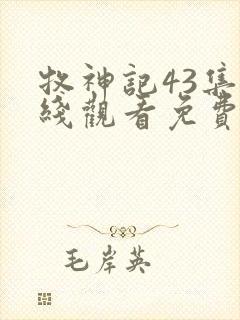 牧神記43集
綫觀看免費
毛岸英